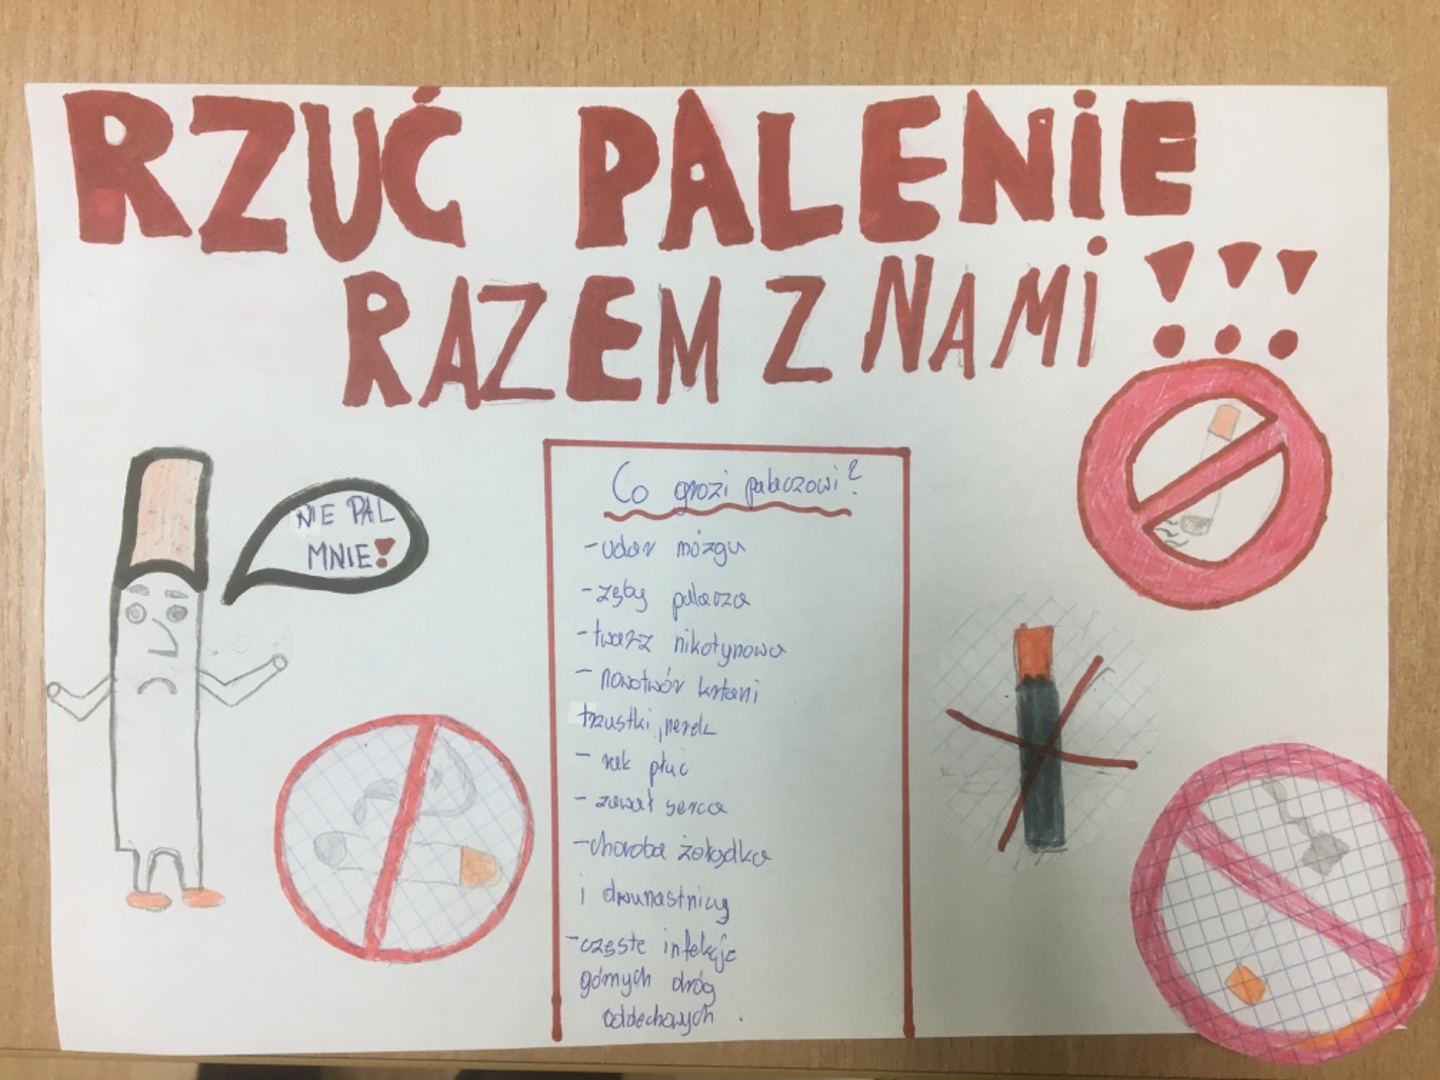 RZUĆ PALENIE
RAZEM Z NAMi !!!
NIE PAL
MNIE!
Co grozi palaczowi?
- udar mózgu
- zęby palacza
- twarz nikotynowa
- nowotwór krtani
trzustki, nerek
- rak płuc
- zawał serca
- choroba żołądka
i dwunastnicy
- częste infekcje
górnych dróg
oddechowych.